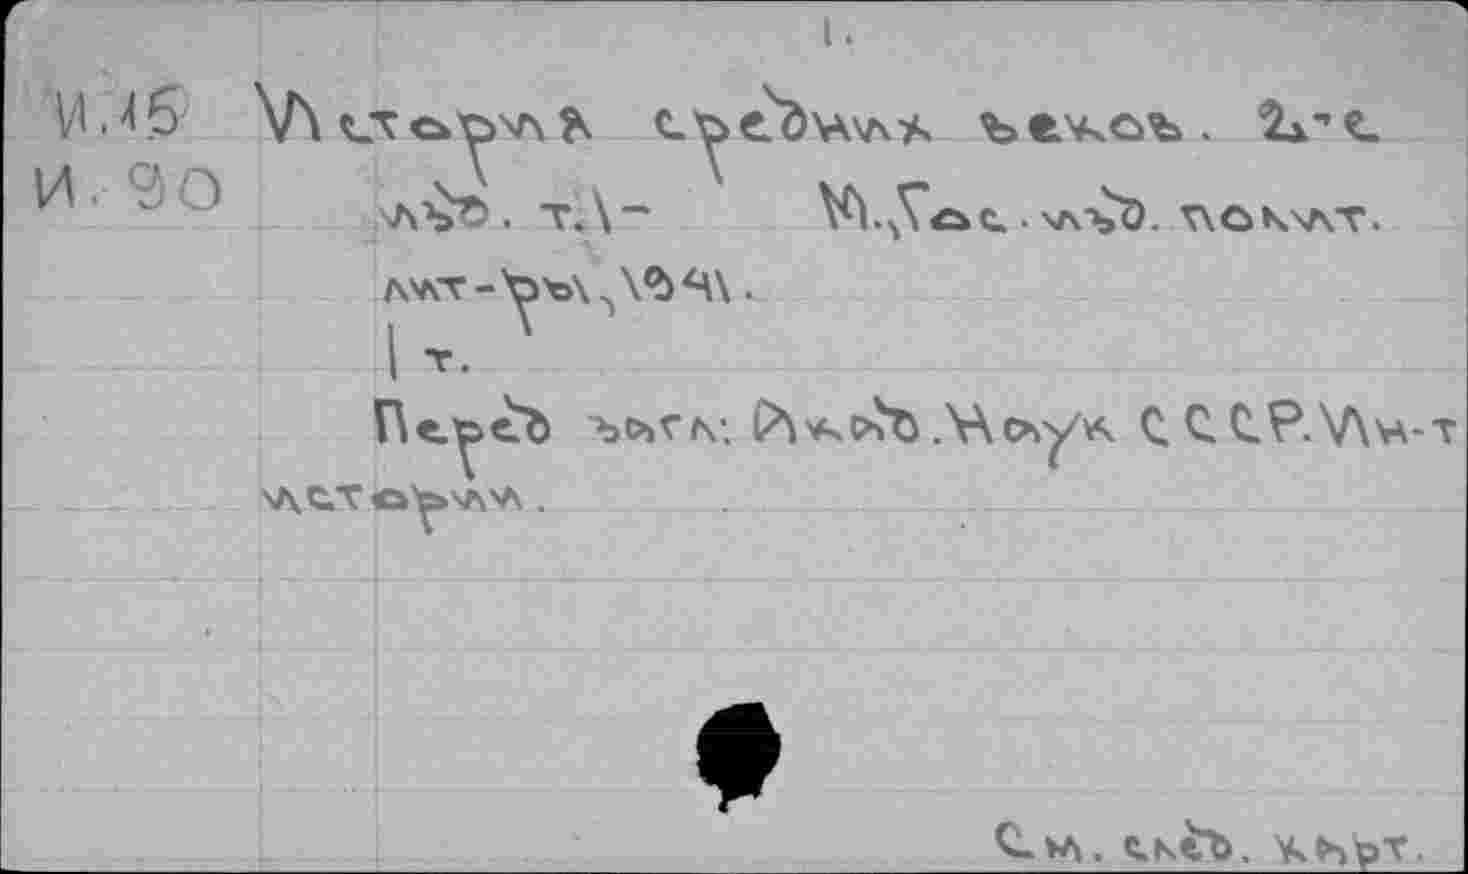 1.
И.15 История средних веков. 2-е
И.90 изд. т.1- М., Гос. изд. полит.
лит-ры, 1941.
1 т.
Перед загл: Акад. Наук СССР. Ин-т
истории.
См. след. карт.